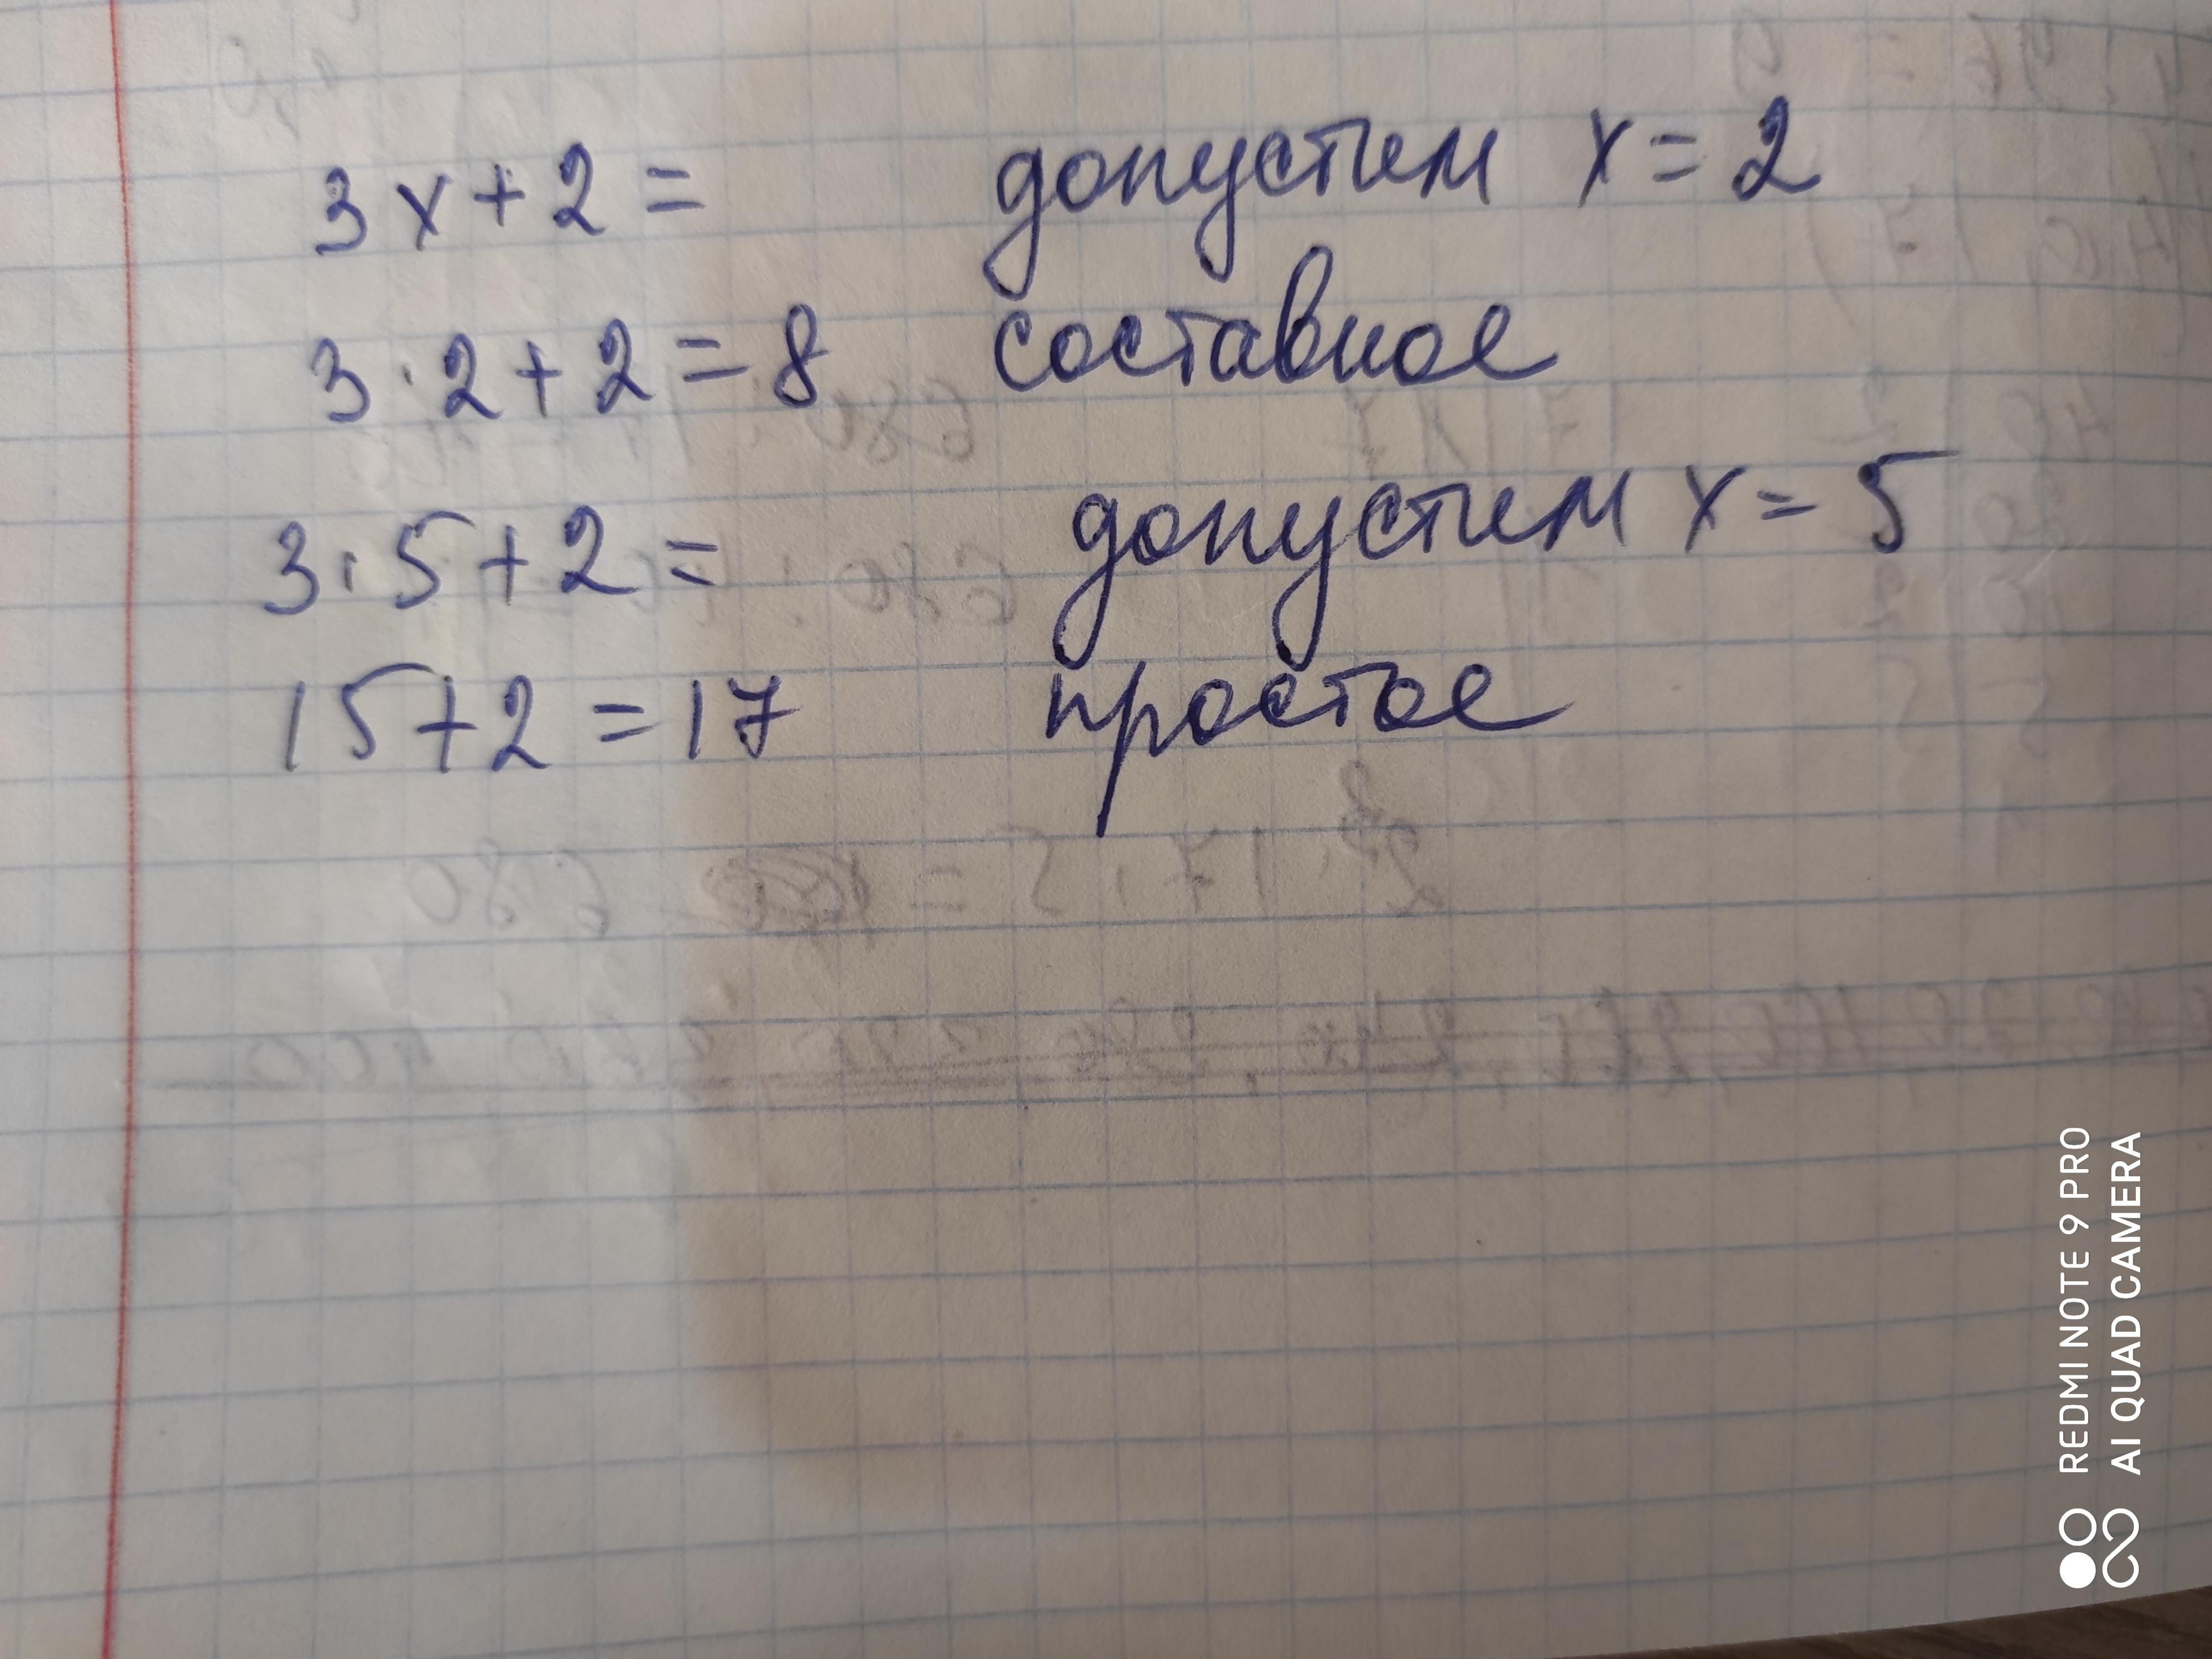 3x+2= допустим x=2
3·2+2=8 составное
3·5+2= допустим x=5
15+2=17 простое
REDMI NOTE 9 PRO
AI QUAD CAMERA